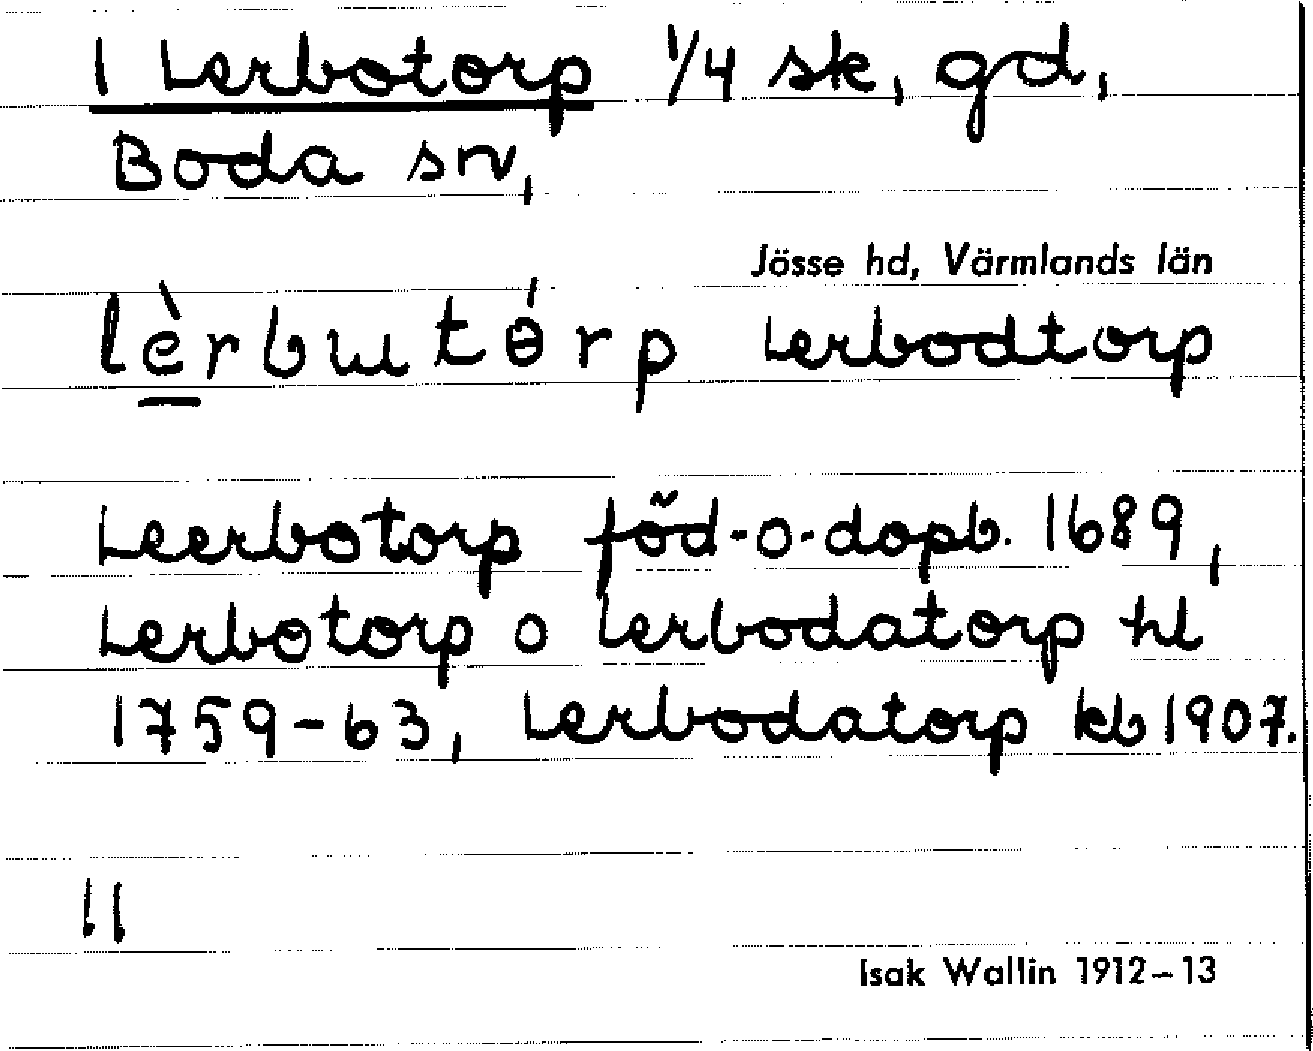 1 Lerbotorp 1/4 sk, gd,
Boda sn,
Jösse hd, Värmlands län
lèrbutɵ́rp Lerbodtorp
Leerbotorp föd-o-dopb. 1689,
Lerbotorp o Lerbodatorp hl
1759-63, Lerbodatorp kb 1907.
11
Isak Wallin 1912–13